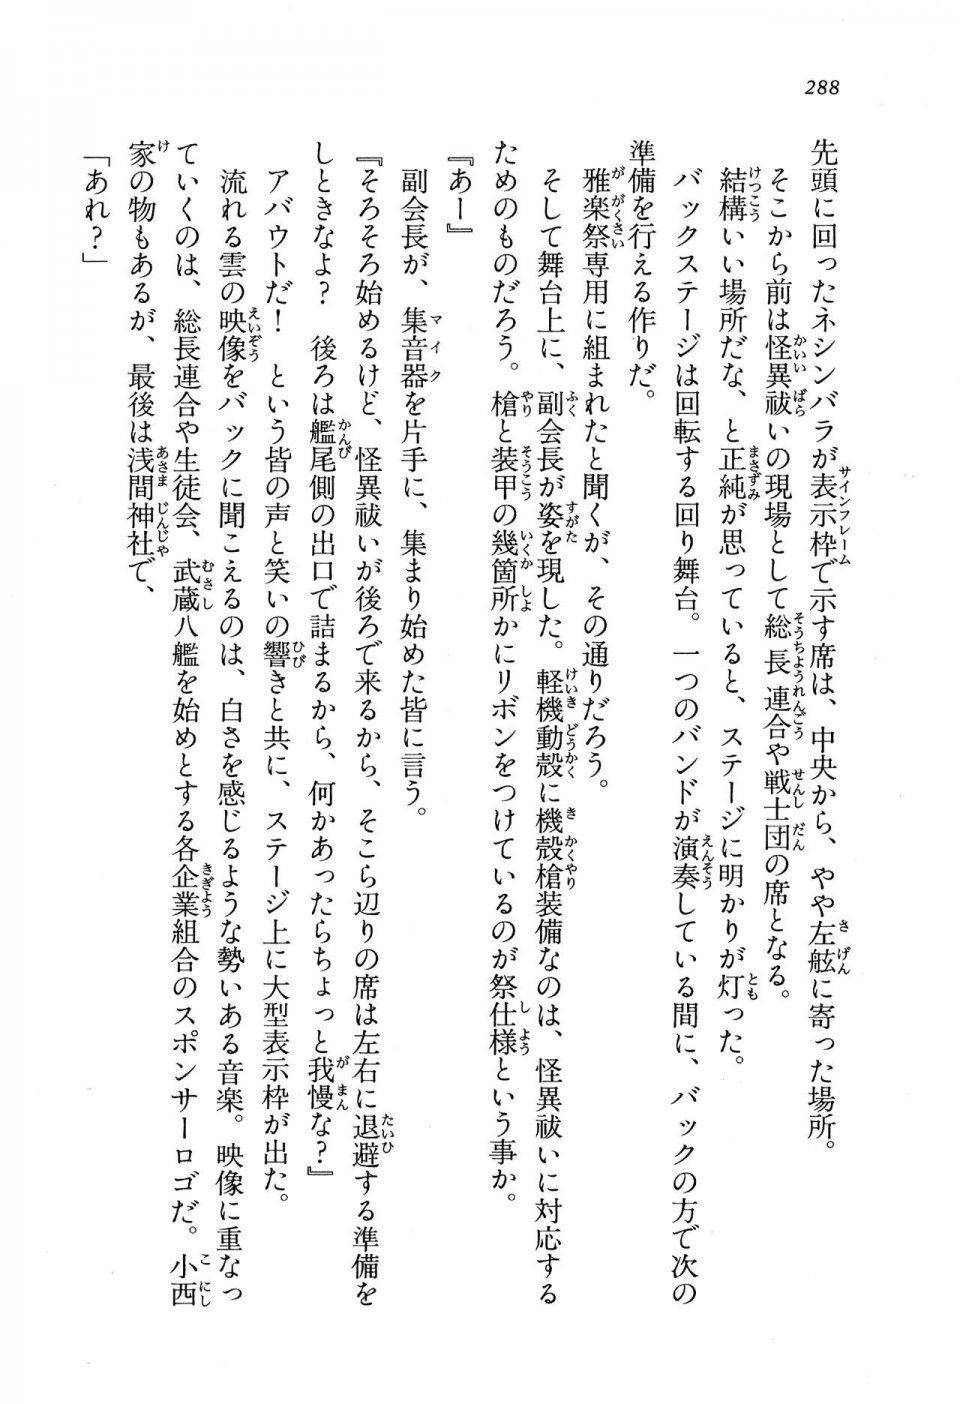 288
先頭に回ったネシンバラが表示枠で示す席は、中央から、やや左舷に寄った場所。
そこから前は怪異祓いの現場として総長連合や戦士団の席となる。
結構いい場所だな、と正純が思っていると、ステージに明かりが灯った。
バックステージは回転する回り舞台。一つのバンドが演奏している間に、バックの方で次の
準備を行える作りだ。
雅楽祭専用に組まれたと聞くが、その通りだろう。
そして舞台上に、副会長が姿を現した。軽機動殻に機殻槍装備なのは、怪異祓いに対応する
ためのものだろう。槍と装甲の幾箇所かにリボンをつけているのが祭仕様という事か。
『あー』
副会長が、集音器を片手に、集まり始めた皆に言う。
『そろそろ始めるけど、怪異祓いが後ろで来るから、そこら辺りの席は左右に退避する準備を
しときなよ？　後ろは艦尾側の出口で詰まるから、何かあったらちょっと我慢な？』
アバウトだ！　という皆の声と笑いの響きと共に、ステージ上に大型表示枠が出た。
流れる雲の映像をバックに聞こえるのは、白さを感じるような勢いある音楽。映像に重なっ
ていくのは、総長連合や生徒会、武蔵八艦を始めとする各企業組合のスポンサーロゴだ。小西
家の物もあるが、最後は浅間神社で、
「あれ？」